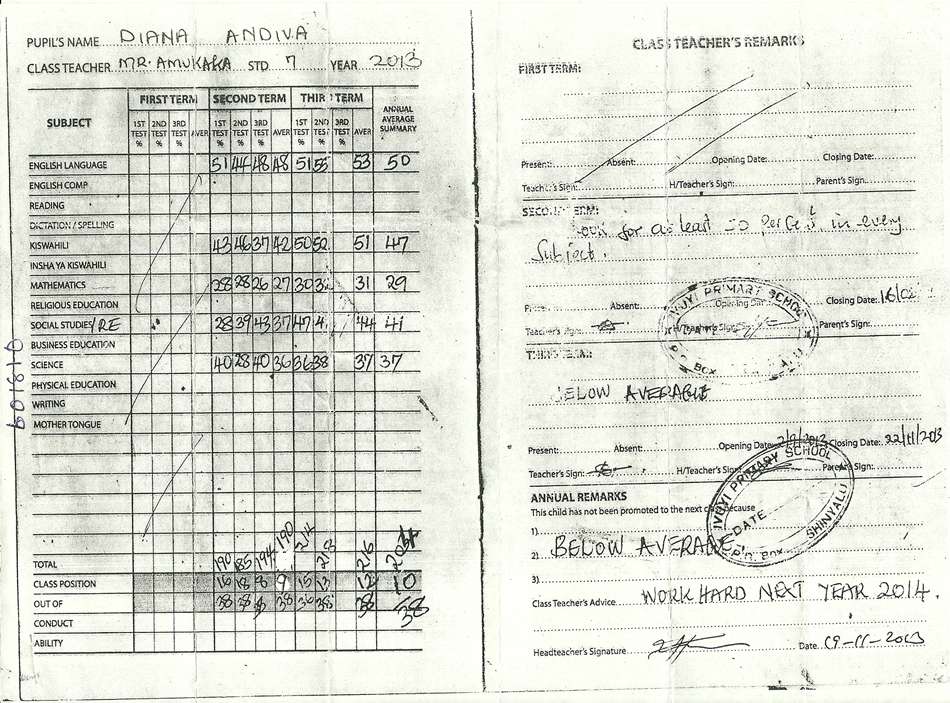 PUPIL'S NAME DIANA ANDIVA
CLASS TEACHER MR. AMUKAKA STD 7 YEAR 2013
SUBJECT FIRST TERM SECOND TERM THIRD TERM ANNUAL AVERAGE SUMMARY
1ST TEST % 2ND TEST % 3RD TEST % AVER 1ST TEST % 2ND TEST % 3RD TEST % AVER 1ST TEST % 2ND TEST % 3RD TEST % AVER
ENGLISH LANGUAGE 51 44 48 48 51 55 53 50
ENGLISH COMP
READING
DICTATION / SPELLING
KISWAHILI 43 46 37 42 50 52 51 47
INSHA YA KISWAHILI
MATHEMATICS 28 28 26 27 30 31 29
RELIGIOUS EDUCATION
SOCIAL STUDIES/RE 28 39 43 37 47 44 41
BUSINESS EDUCATION
SCIENCE 40 28 40 36 36 38 37 37
PHYSICAL EDUCATION
WRITING
MOTHER TONGUE
TOTAL 190 185 194 190 214 218 216
CLASS POSITION 16 18 8 9 15 13 12 10
OUT OF 38 38 38 38 38 38
CONDUCT
ABILITY
CLASS TEACHER'S REMARKS
FIRST TERM:
Present: Absent: Opening Date: Closing Date:
Teacher's Sign: H/Teacher's Sign: Parent's Sign:
SECOND TERM:
for at least 50 percent in every
Subject.
Absent: Opening Closing Date:
Teacher's Sign: H/Teacher's Sign: Parent's Sign:
PRIMARY SCHOOL
DATE
BOX
BELOW AVERAGE
Present: Absent: Opening Date: 2/9/2013 Closing Date: 22/11/2013
Teacher's Sign: H/Teacher's Sign: Parent's Sign:
PRIMARY SCHOOL
DATE
P.O. BOX
SHINYALU
ANNUAL REMARKS
This child has not been promoted to the next because
1)
2) BELOW AVERAGE
3)
Class Teacher's Advice WORK HARD NEXT YEAR 2014.
Headteacher's Signature Date 19-11-2013